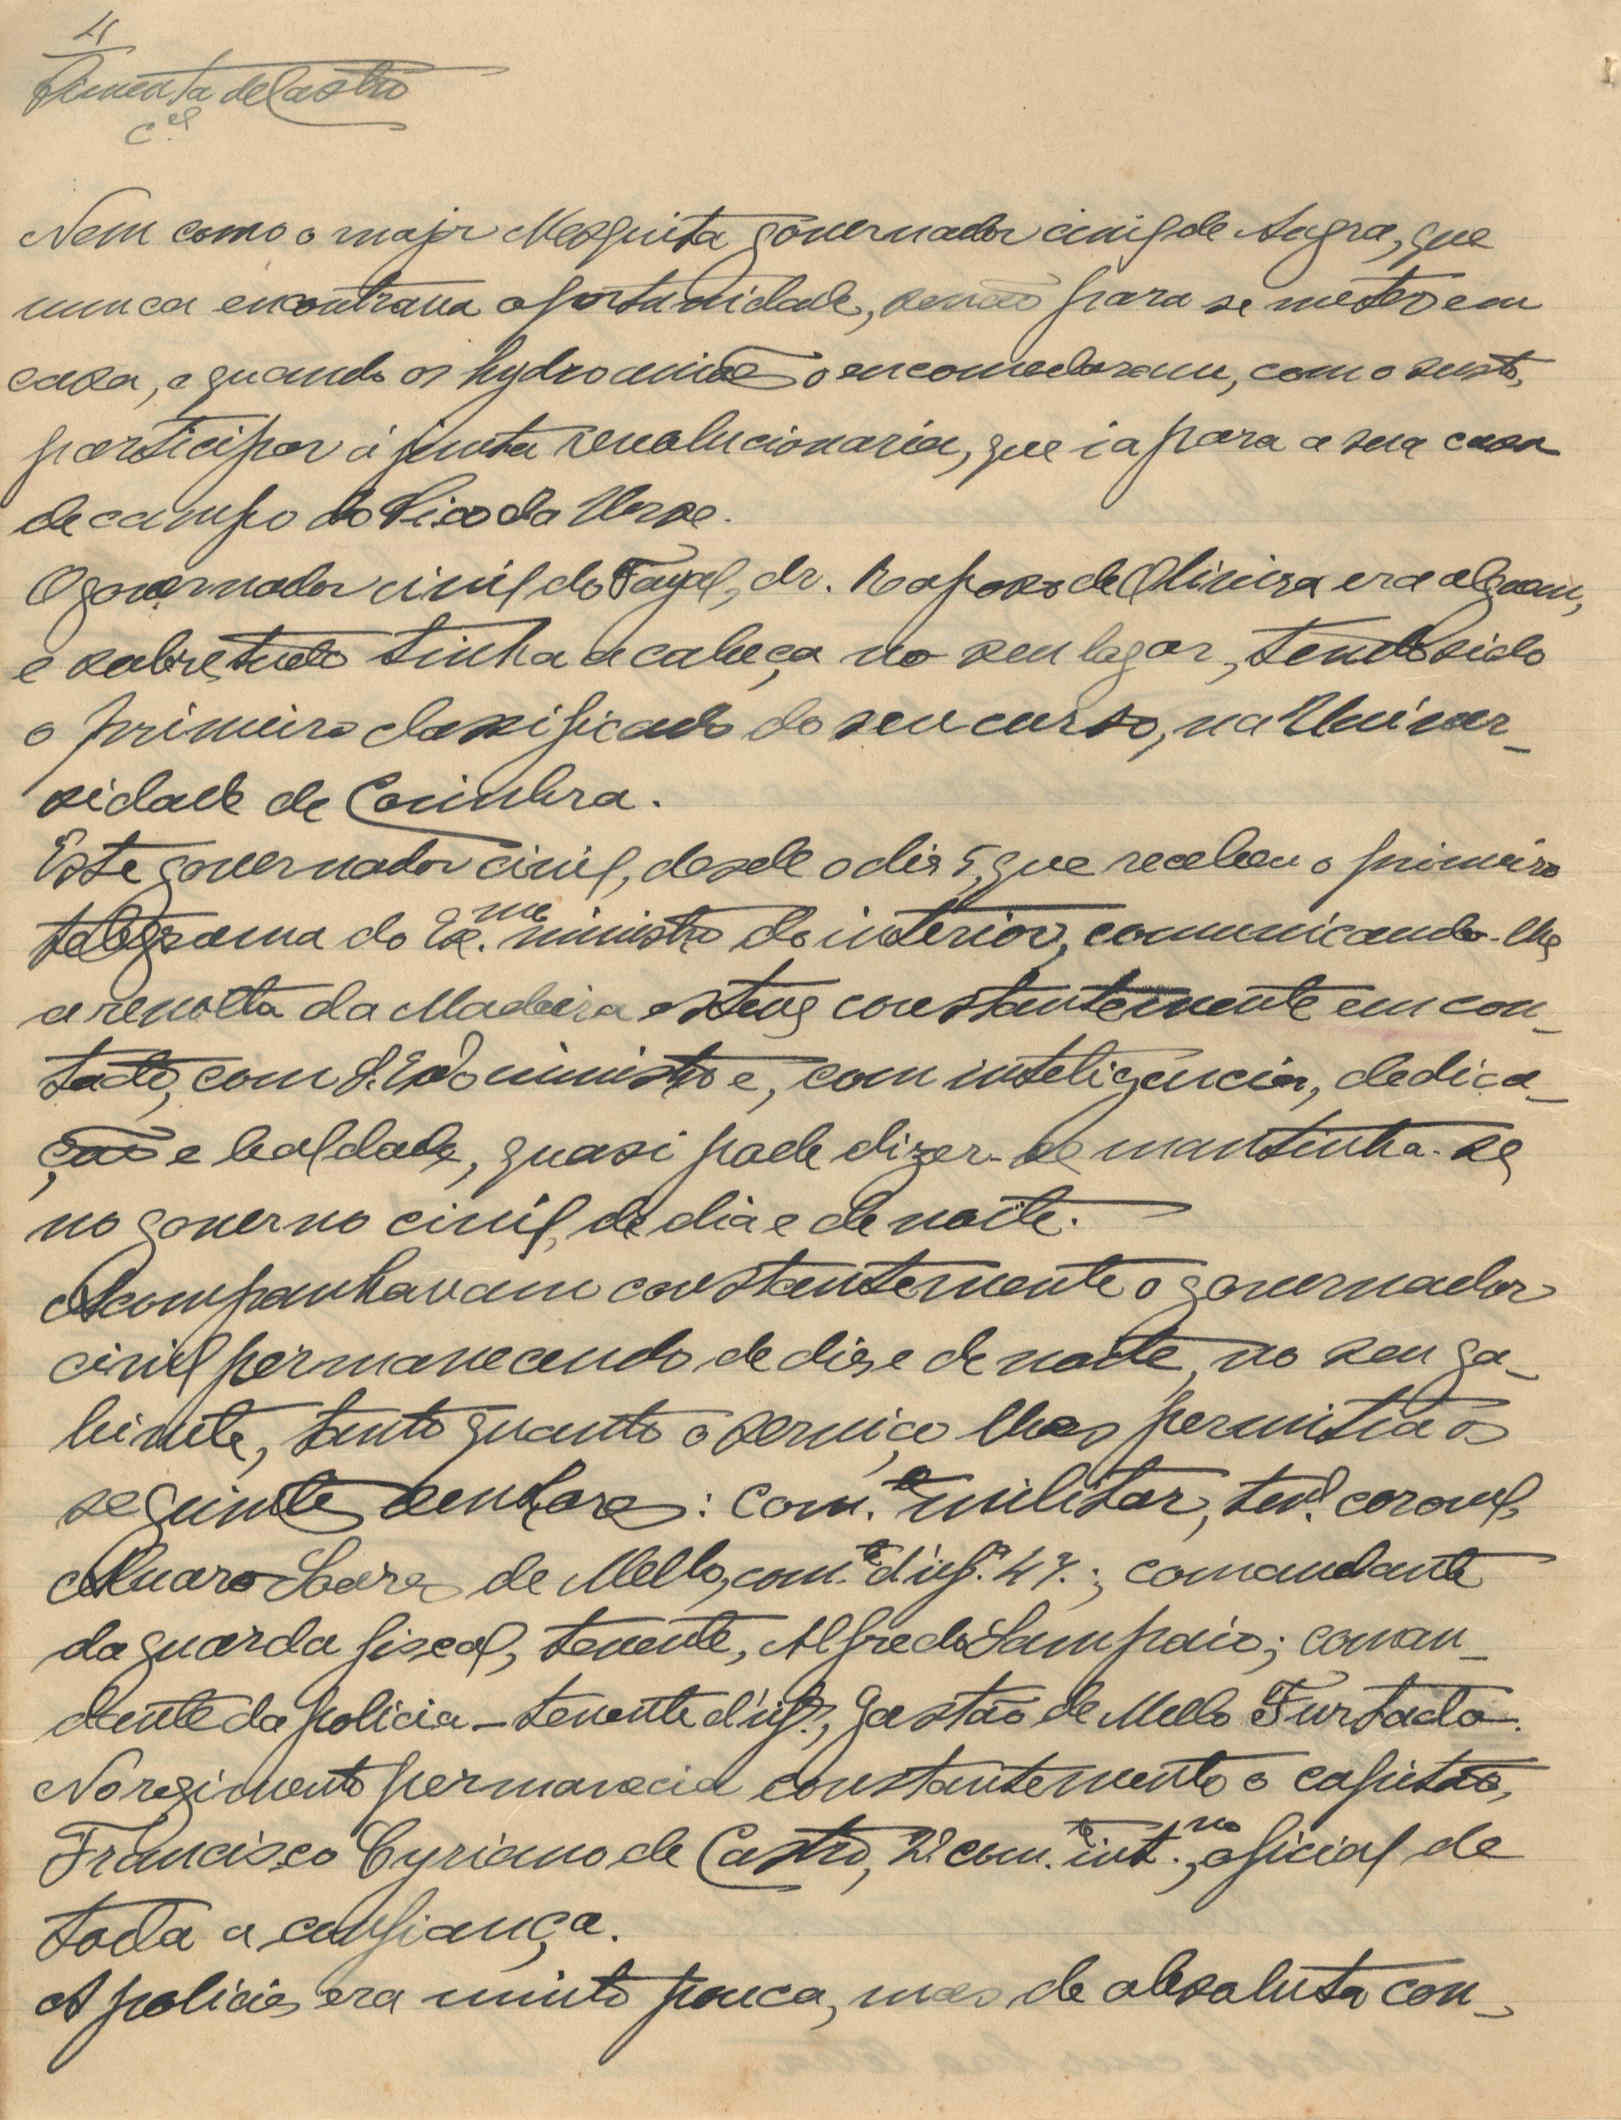 4
Pimenta de Castro
C.el
Nem como o major Mesquita governador civil de Angra, que
nunca encontrava oportunidade, senão para se meter em
casa, e quando os hydroaviões o encomodaram, com o susto,
participar á junta revolucionaria, que ia para a sua casa
de campo do Pico da Urze.
O governador civil do Fayal, dr. Raposo de Oliveira era alguem,
e sobretudo tinha a cabeça no seu logar, tendo sido
o primeiro classificado do seu curso, na Univer-
sidade de Coimbra.
Este governador civil, desde o dia 5, que recebeu o primeiro
telegrama do Ex.mo ministro do interior, comunicando-lhe
a revolta da Madeira esteve constantemente em con-
tacto, com S. Ex.ª o ministro e, com inteligencia, dedica-
ção e lealdade, quasi pode dizer-se mantinha-se
no governo civil, de dia e de noite.
Acompanhavam constantemente o governador
civil permanecendo de dia e de noite, no seu ga-
binete, tanto quanto o serviço lhes permitia os
seguintes senhores: com.te militar, ten.te coronel,
Alvaro Soares de Mello, com.te d'inf.ª 4 7.; comandante
da guarda fiscal, tenente, Alfredo Sampaio; coman-
dante da policia - tenente d'inf.ª, Gastão de Mello Furtado.
No regimento permanecia constantemente o capitão,
Francisco Cyriano de Castro, 2.º com.te int.no, oficial de
toda a confiança.
A policia era muito pouca, mas de absoluta con-